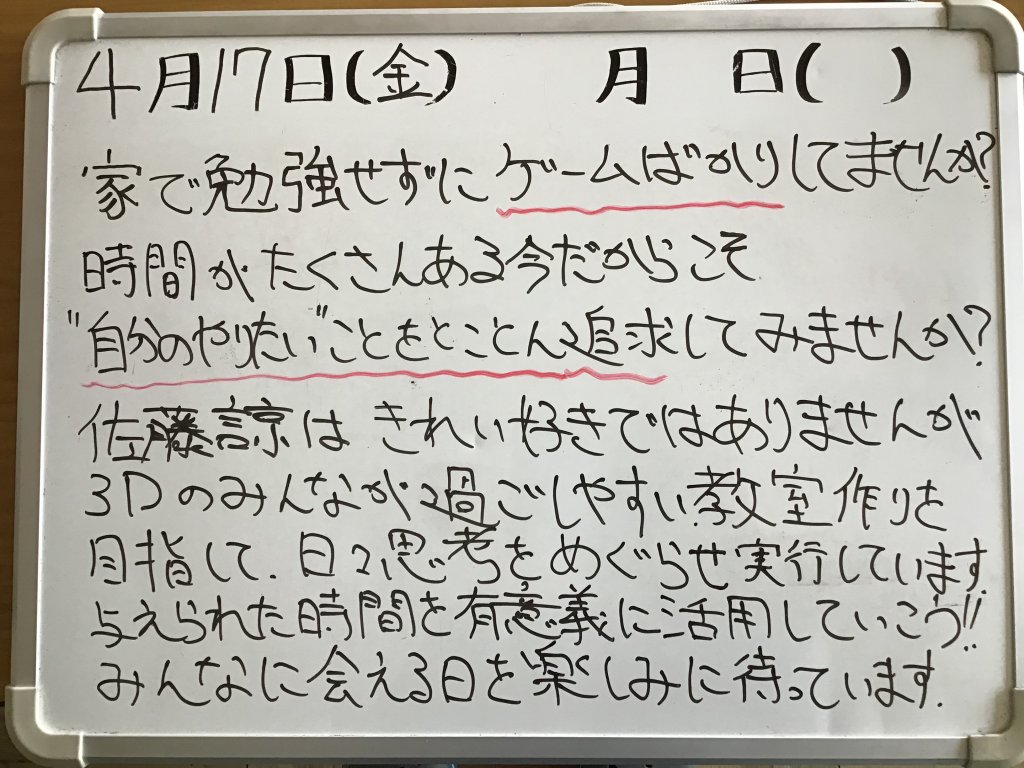 4月17日(金)　　月　日(　)
家で勉強せずにゲームばかりしてませんか?
時間がたくさんある今だからこそ
"自分のやりたい"ことをとことん追求してみませんか?
佐藤諒はきれい好きではありませんが
3Dのみんなが過ごしやすい教室作りを
目指して、日々思考をめぐらせ実行しています。
与えられた時間を有意義に活用していこう!!
みんなに会える日を楽しみに待っています。